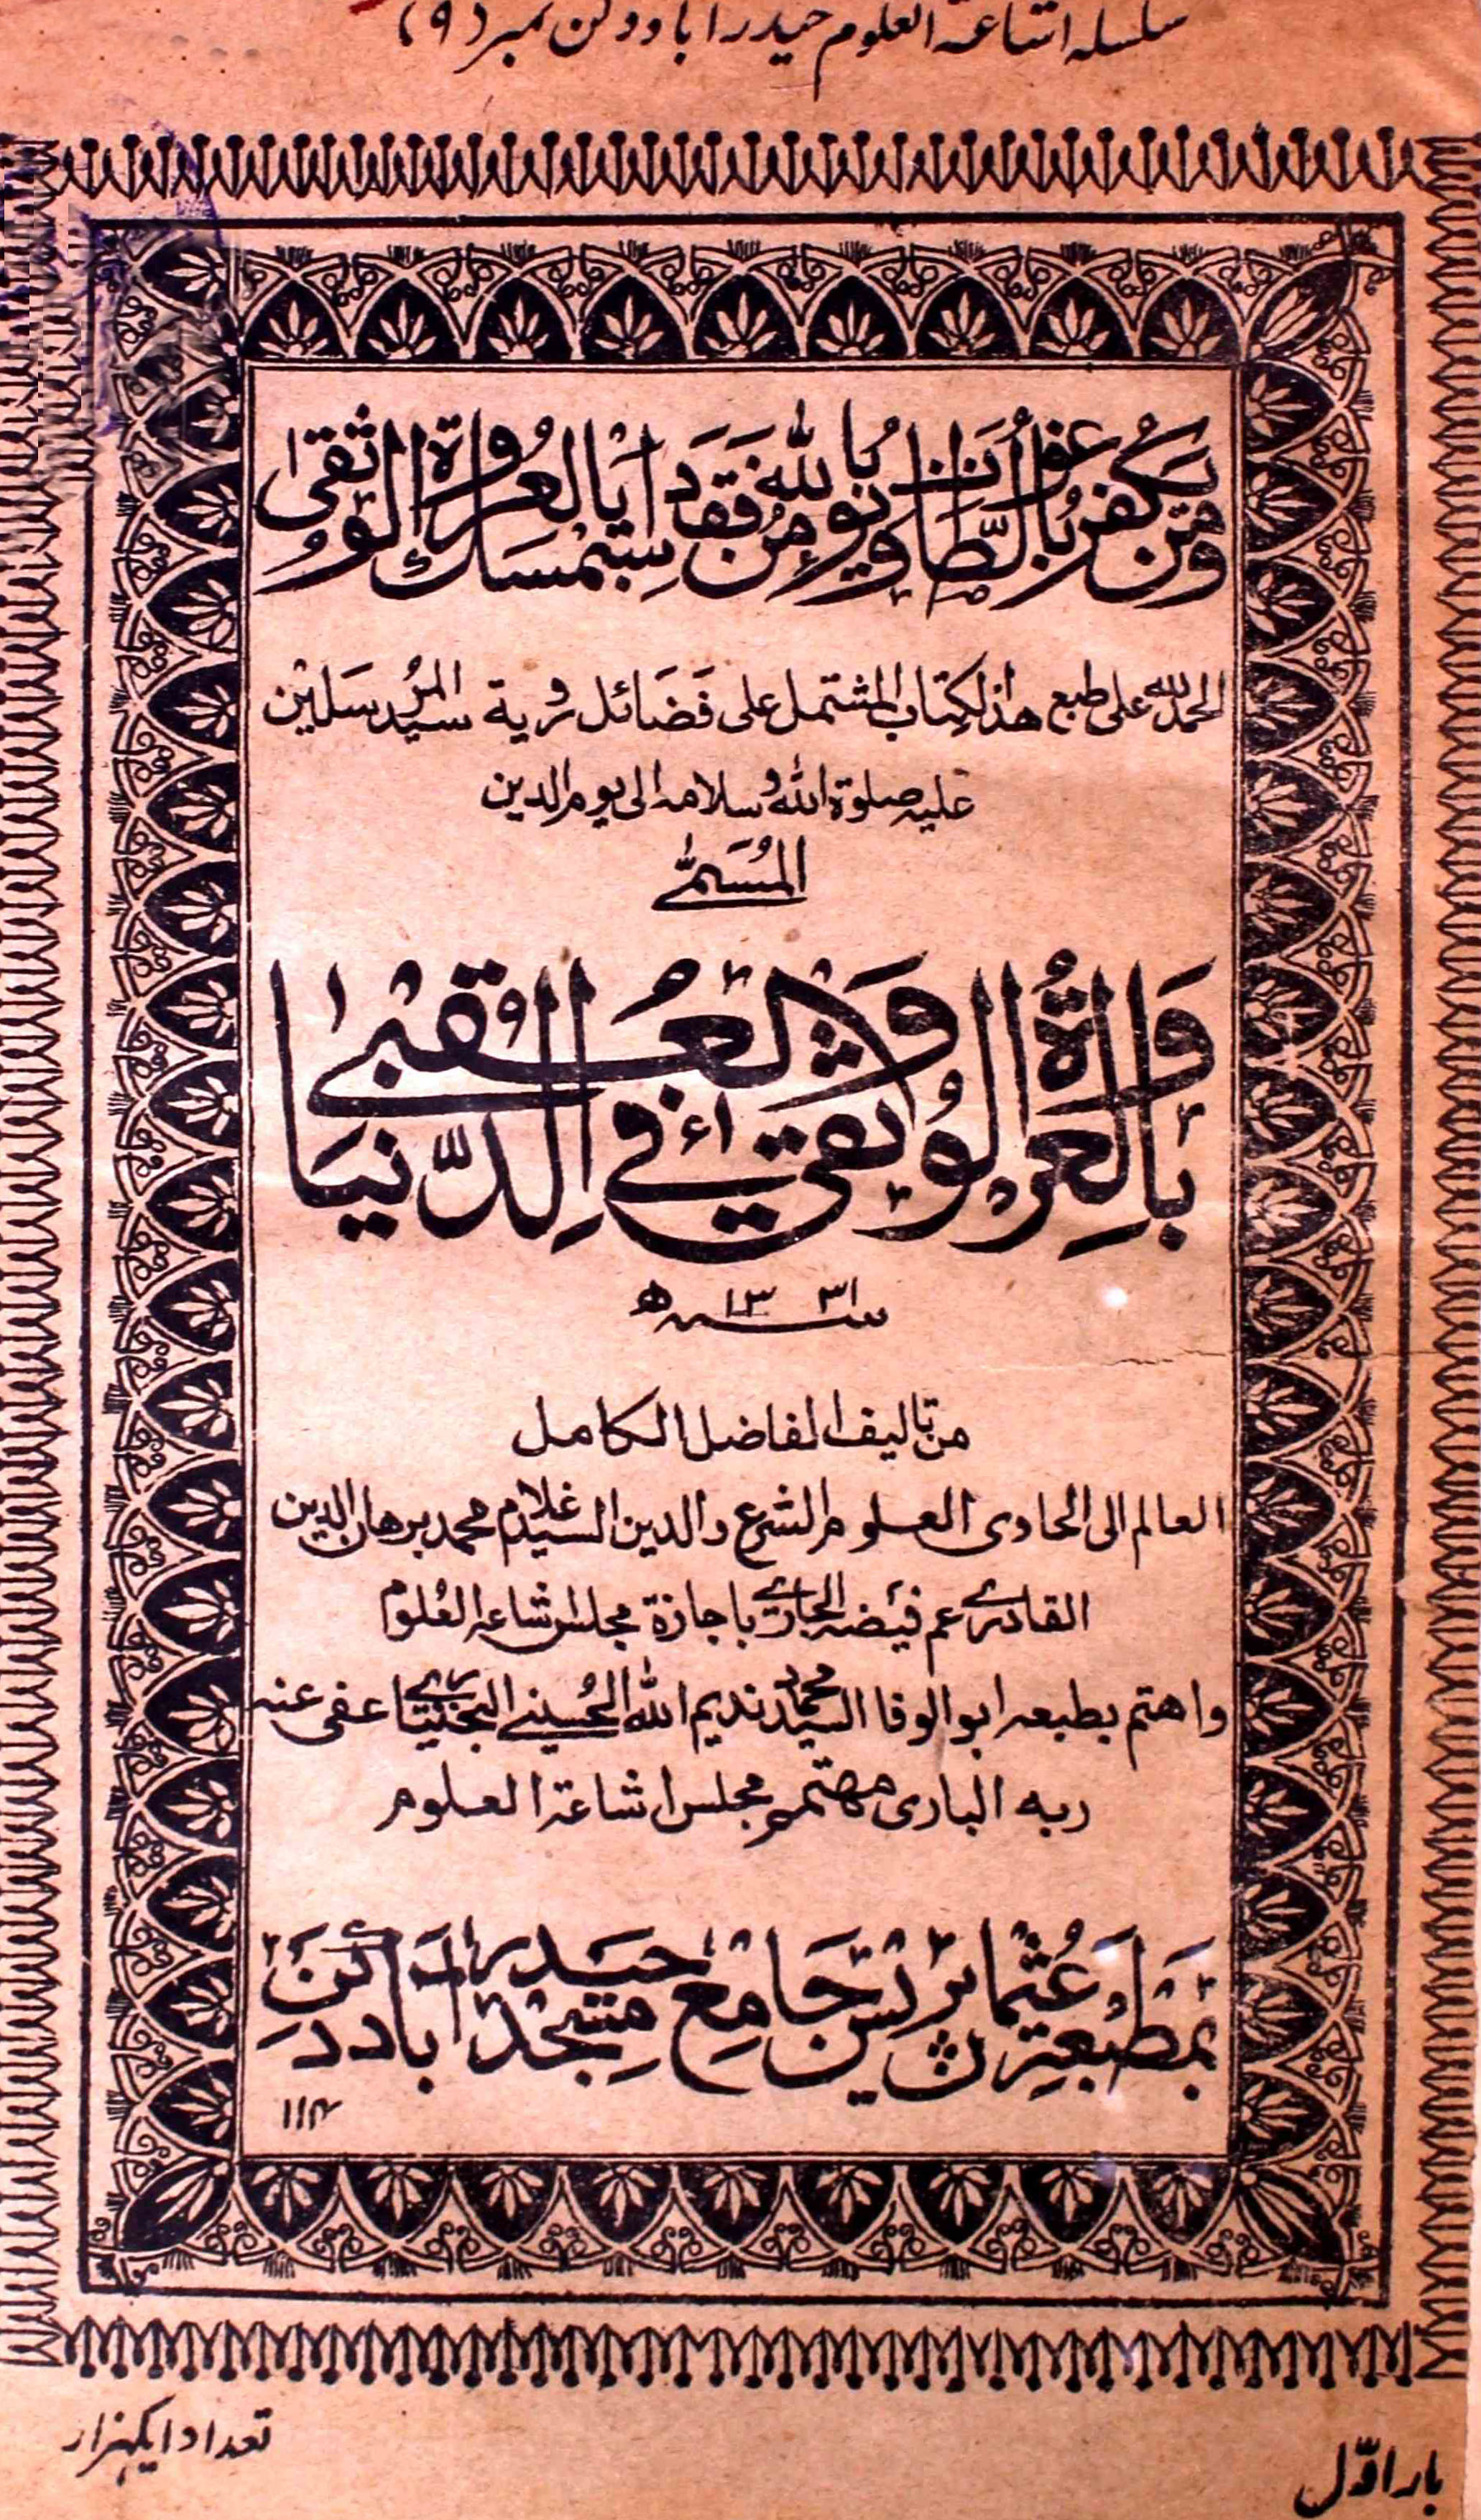 سلسلہ اشاعۃ العلوم حیدرآباد دکن نمبر (۹)
وَمَن يَكفُر بِالطَّاغُوتِ وَيُؤمِن بِاللهِ فَقَدِ استَمسَكَ بِالعُروَةِ الوُثقىٰ
الحمد لله على طبع هذا الكتاب المشتمل على فضائل رؤية سيد المرسلين
عليه صلوة الله وسلامه الى يوم الدين
المُسَمّٰى
بالعروة الوثقى في الدنيا والعقبى
سنہ ۱۳۳۱ ھ
من تاليف الفاضل الكامل
العالم الحاوى العلوم الشرع والدين السيد غلام محمد برهان الدين
القادرى عم فيضه الجارى باجازة مجلس اشاعة العلوم
واهتم بطبعه ابو الوفا السيد محمد نديم الله الحسينى البختيارى عفى عنه
ربه البارى مهتمم مجلس اشاعة العلوم
بمطبعة عثمان پريس جامع مسجد حيدرآباد دكن
بار اوّل
تعداد ایکہزار